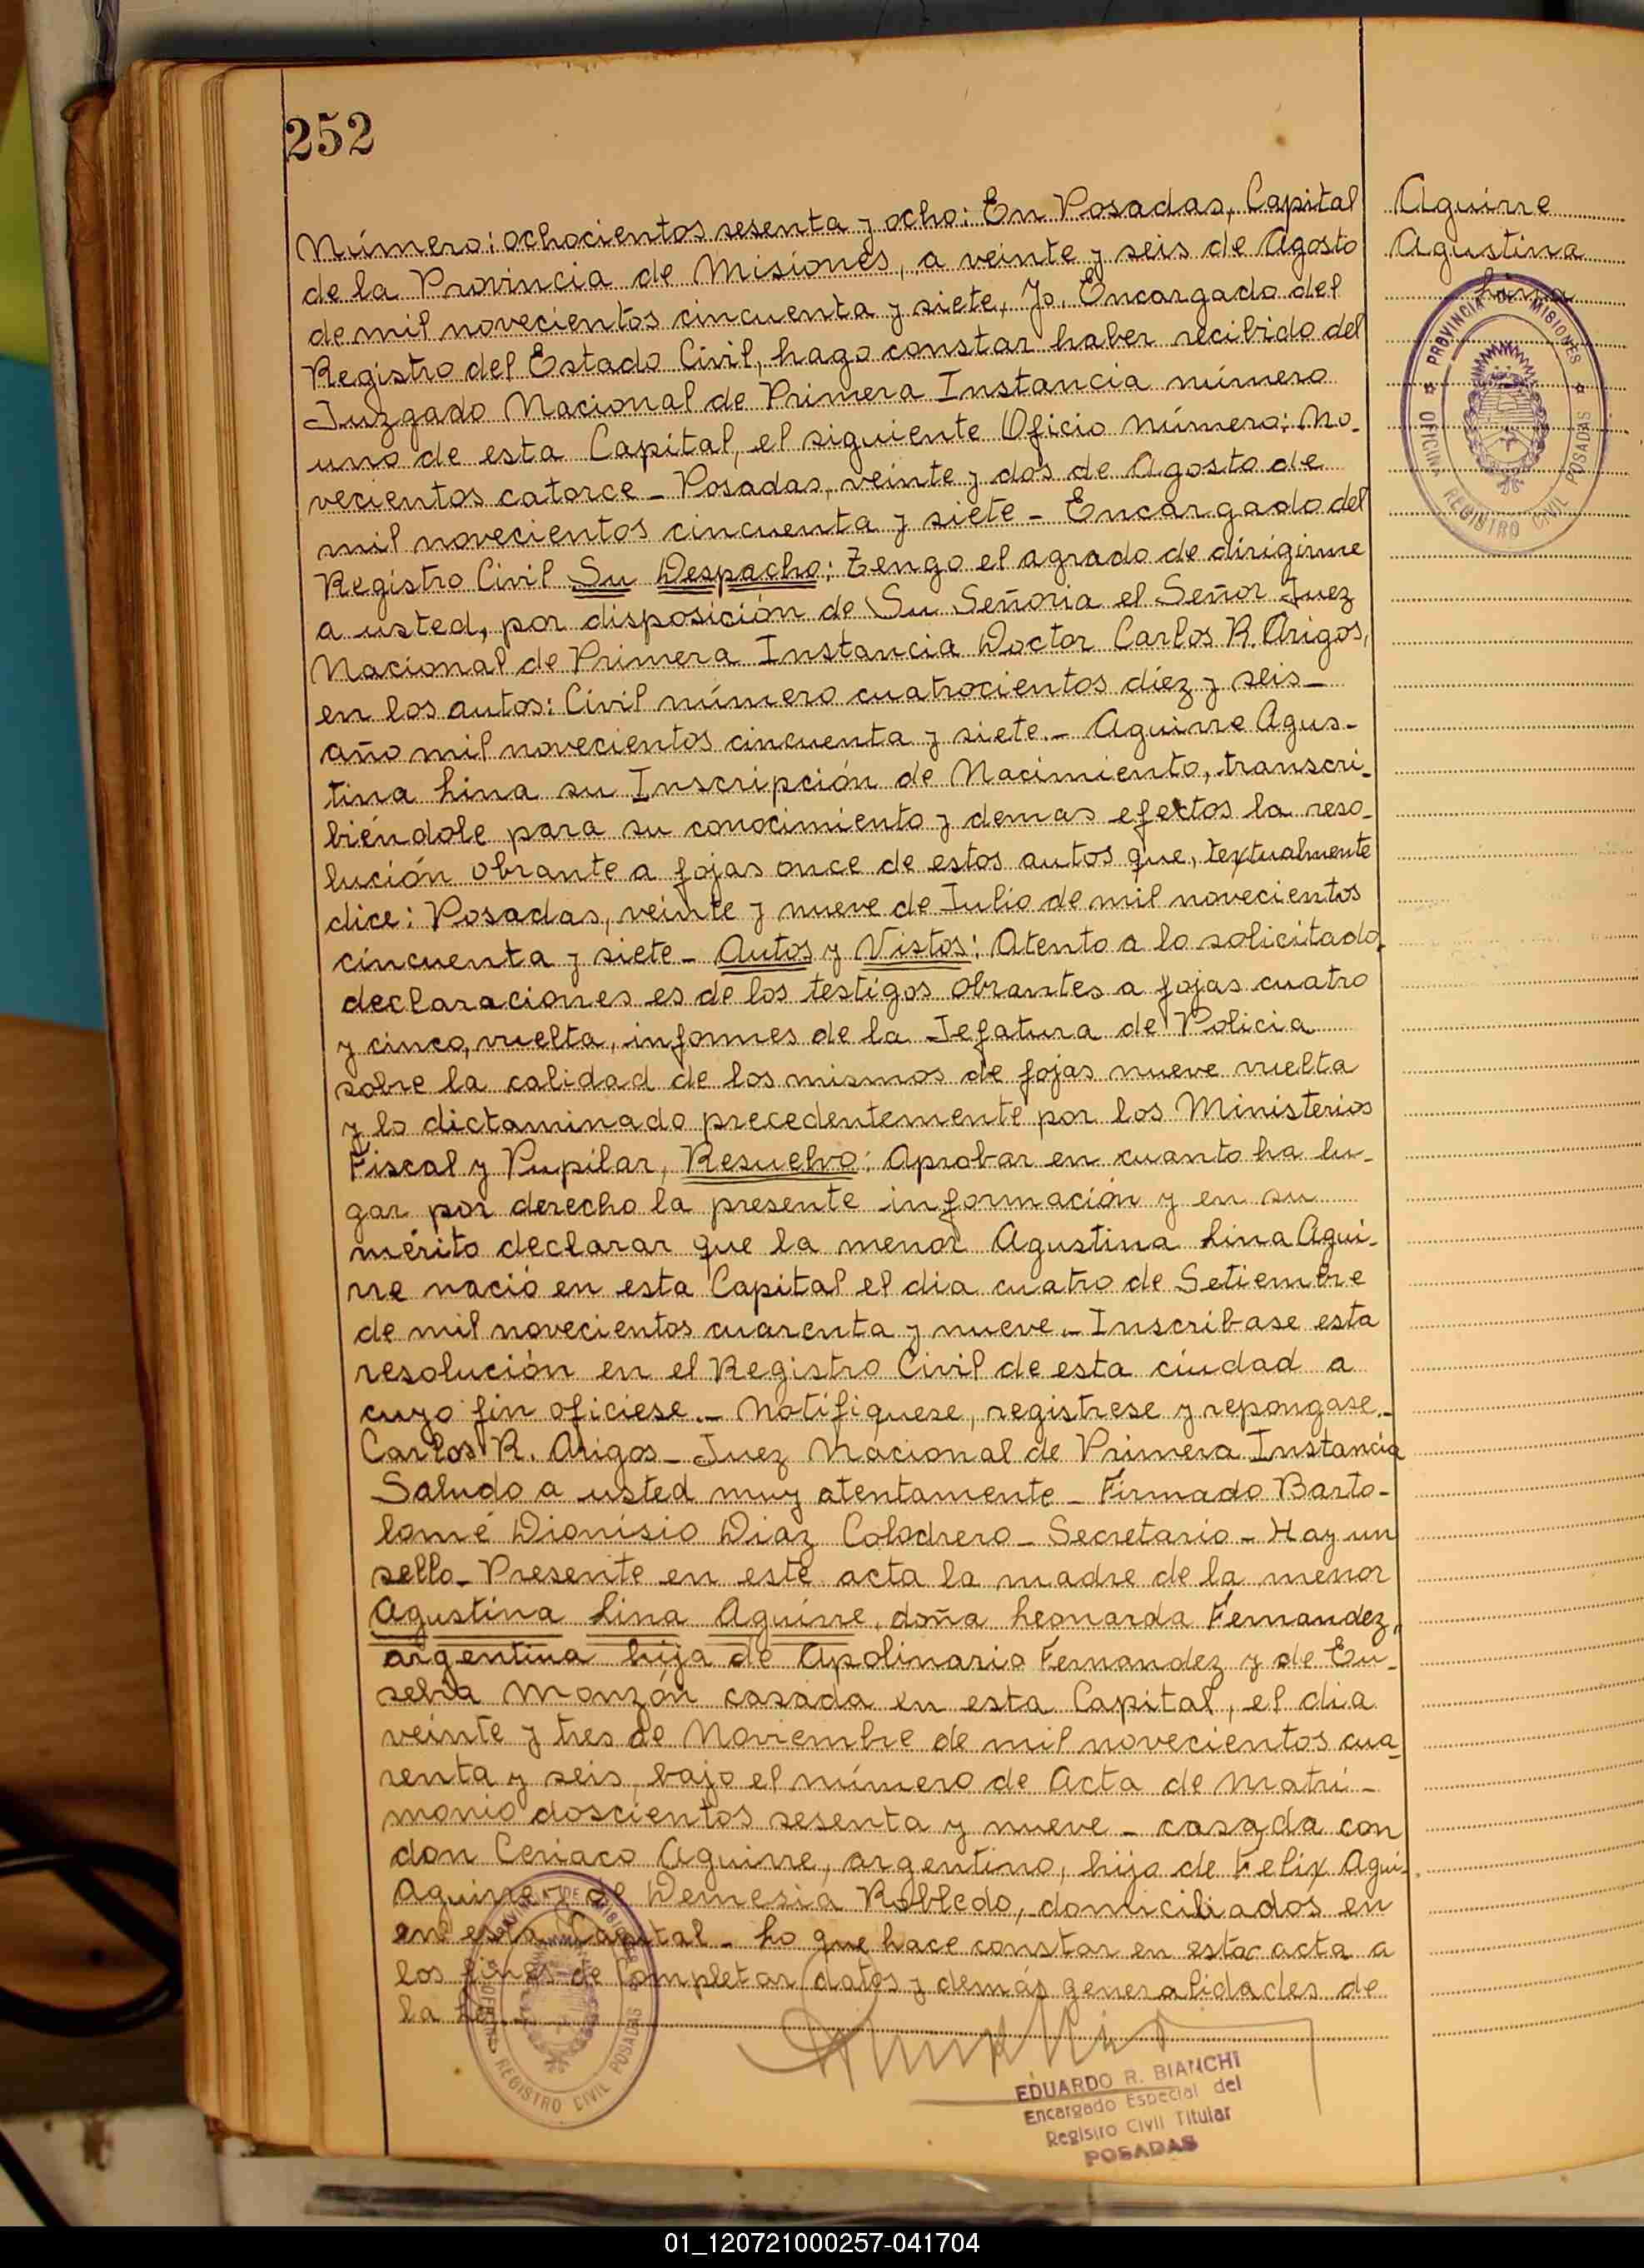 252
Número: ochocientos sesenta y ocho: En Posadas, Capital
de la Provincia de Misiones, a veinte y seis de Agosto
de mil novecientos cincuenta y siete, Yo, Encargado del
Registro del Estado Civil, hago constar haber recibido del
Juzgado Nacional de Primera Instancia número
uno de esta Capital, el siguiente Oficio número: No-
vecientos catorce - Posadas, veinte y dos de Agosto de
mil novecientos cincuenta y siete - Encargado del
Registro Civil Su Despacho: Tengo el agrado de dirigirme
a usted, por disposición de Su Señoria el Señor Juez
Nacional de Primera Instancia Doctor Carlos R. Arigos,
en los autos: Civil número cuatrocientos diez y seis -
año mil novecientos cincuenta y siete. - Aguirre Agus-
tina Lina su Inscripción de Nacimiento, transcri-
biéndole para su conocimiento y demas efectos la reso-
lución obrante a fojas once de estos autos que, textualmente
dice: Posadas, veinte y nueve de Julio de mil novecientos
cincuenta y siete - Autos y Vistos: Atento a lo solicitado,
declaraciones es de los testigos obrantes a fojas cuatro
y cinco, vuelta, informes de la Jefatura de Policia
sobre la calidad de los mismos de fojas nueve vuelta
y lo dictaminado precedentemente por los Ministerios
Fiscal y Pupilar, Resuelvo: Aprobar en cuanto ha lu-
gar por derecho la presente información y en su
mérito declarar que la menor Agustina Lina Agui-
rre nació en esta Capital el dia cuatro de Setiembre
de mil novecientos cuarenta y nueve. - Inscribase esta
resolución en el Registro Civil de esta ciudad a
cuyo fin oficiese. - Notifiquese, registrese y repongase. -
Carlos R. Arigos - Juez Nacional de Primera Instancia
Saludo a usted muy atentamente - Firmado Barto-
lomé Dionisio Diaz Colodrero - Secretario - Hay un
sello - Presente en este acta la madre de la menor
Agustina Lina Aguirre, doña Leonarda Fernandez,
argentina hija de Apolinario Fernandez y de Eu-
sebia Monzón casada en esta Capital, el dia
veinte y tres de Noviembre de mil novecientos cua-
renta y seis, bajo el número de Acta de Matri-
monio doscientos sesenta y nueve - casada con
don Ceriaco Aguirre, argentino, hijo de Felix Agui-
Aguirre y de Demesia Robledo, domiciliados en
en esta Capital - Lo que hace constar en esta acta a
los fines de completar datos y demás generalidades de
la
EDUARDO R. BIANCHI
Encargado Especial del
Registro Civil Titular
POSADAS
PROVINCIA DE MISIONES
OFICINA REGISTRO CIVIL POSADAS
Aguirre
Agustina
Lina
PROVINCIA DE MISIONES
OFICINA REGISTRO CIVIL POSADAS
01_120721000257-041704